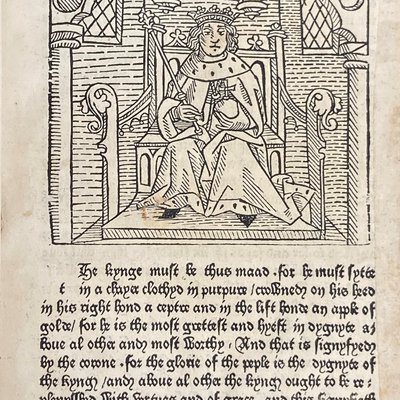 he kynge must be thus maad . for he must sytte
t in a chayer clothyd in purpure / crowned on his heed
in his right hond a ceptre and in the lift honde an apple of
golde / for he is the most grettest and hyest in dygnyte a
boue al other and most worthy . And that is signyfyed
by the corone . for the glorie of the peple is the dygnyte of
the kyng / and aboue al other the kyng ought to be re
with vertues and of grace